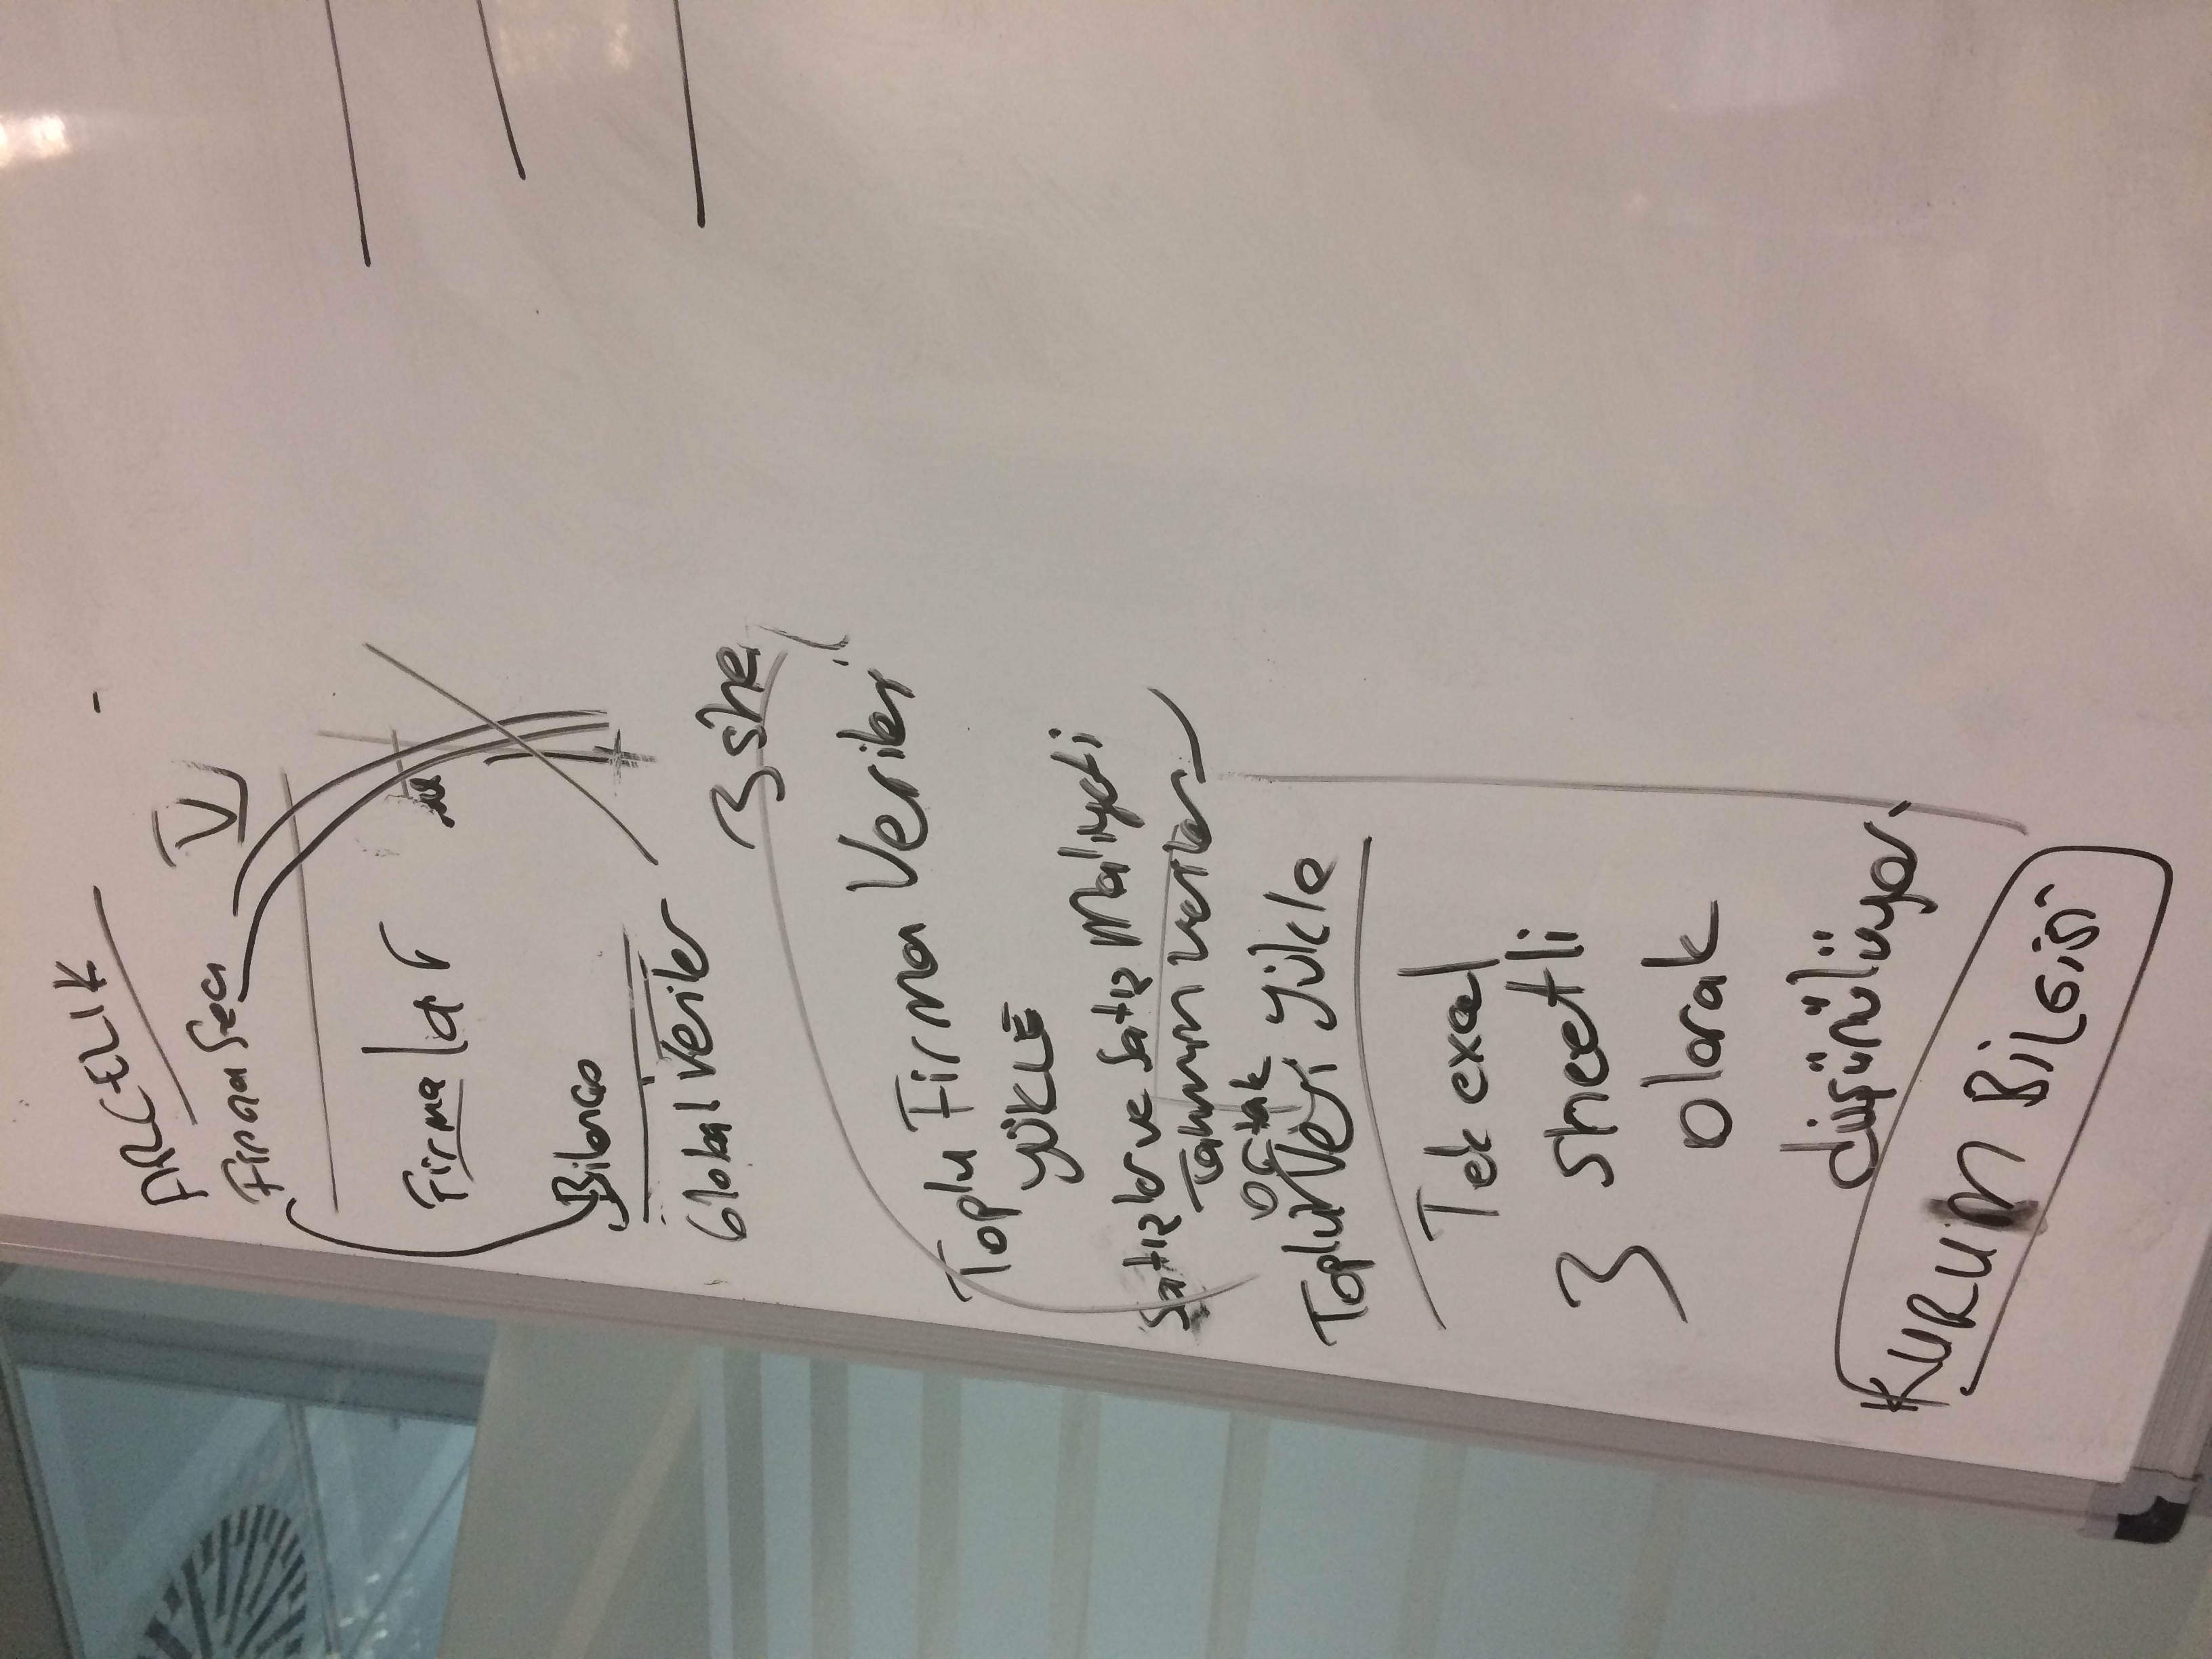 ARCELIK
Firma Sec
V
Firmalar
Bilanco
Global Veriler
3 she
Toplu Firma Verileri
YÜKLE
Satışlar ve Satış Maliyeti
Tahmin Veriler
ortak
Toplu Veri Yükle
Tek excel
3 sheetli
olarak
düşünülüyor.
KURUM BİLGİSİ